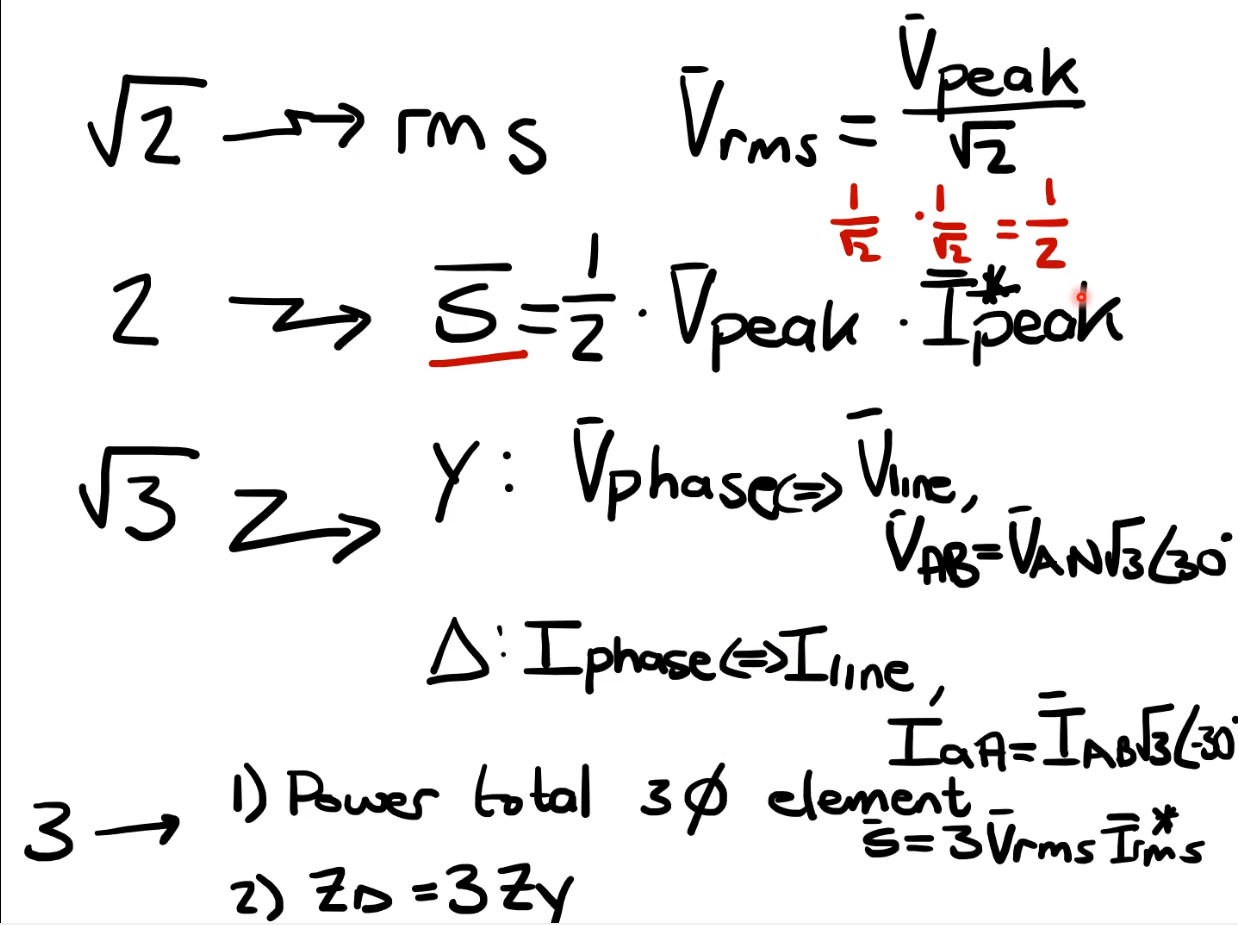 √2 → rms V̄rms = V̄peak/√2
1/√2 · 1/√2 = 1/2
2 → S̄ = 1/2 · V̄peak · Ī*peak
√3 → Y : V̄phase ⟺ V̄line,
V̄AB = V̄AN√3∠30°
Δ : Iphase ⟺ Iline,
IaA = ĪAB√3∠-30°
3 → 1) Power total 3φ element
S̄ = 3V̄rms Ī*rms
2) ZD = 3ZY